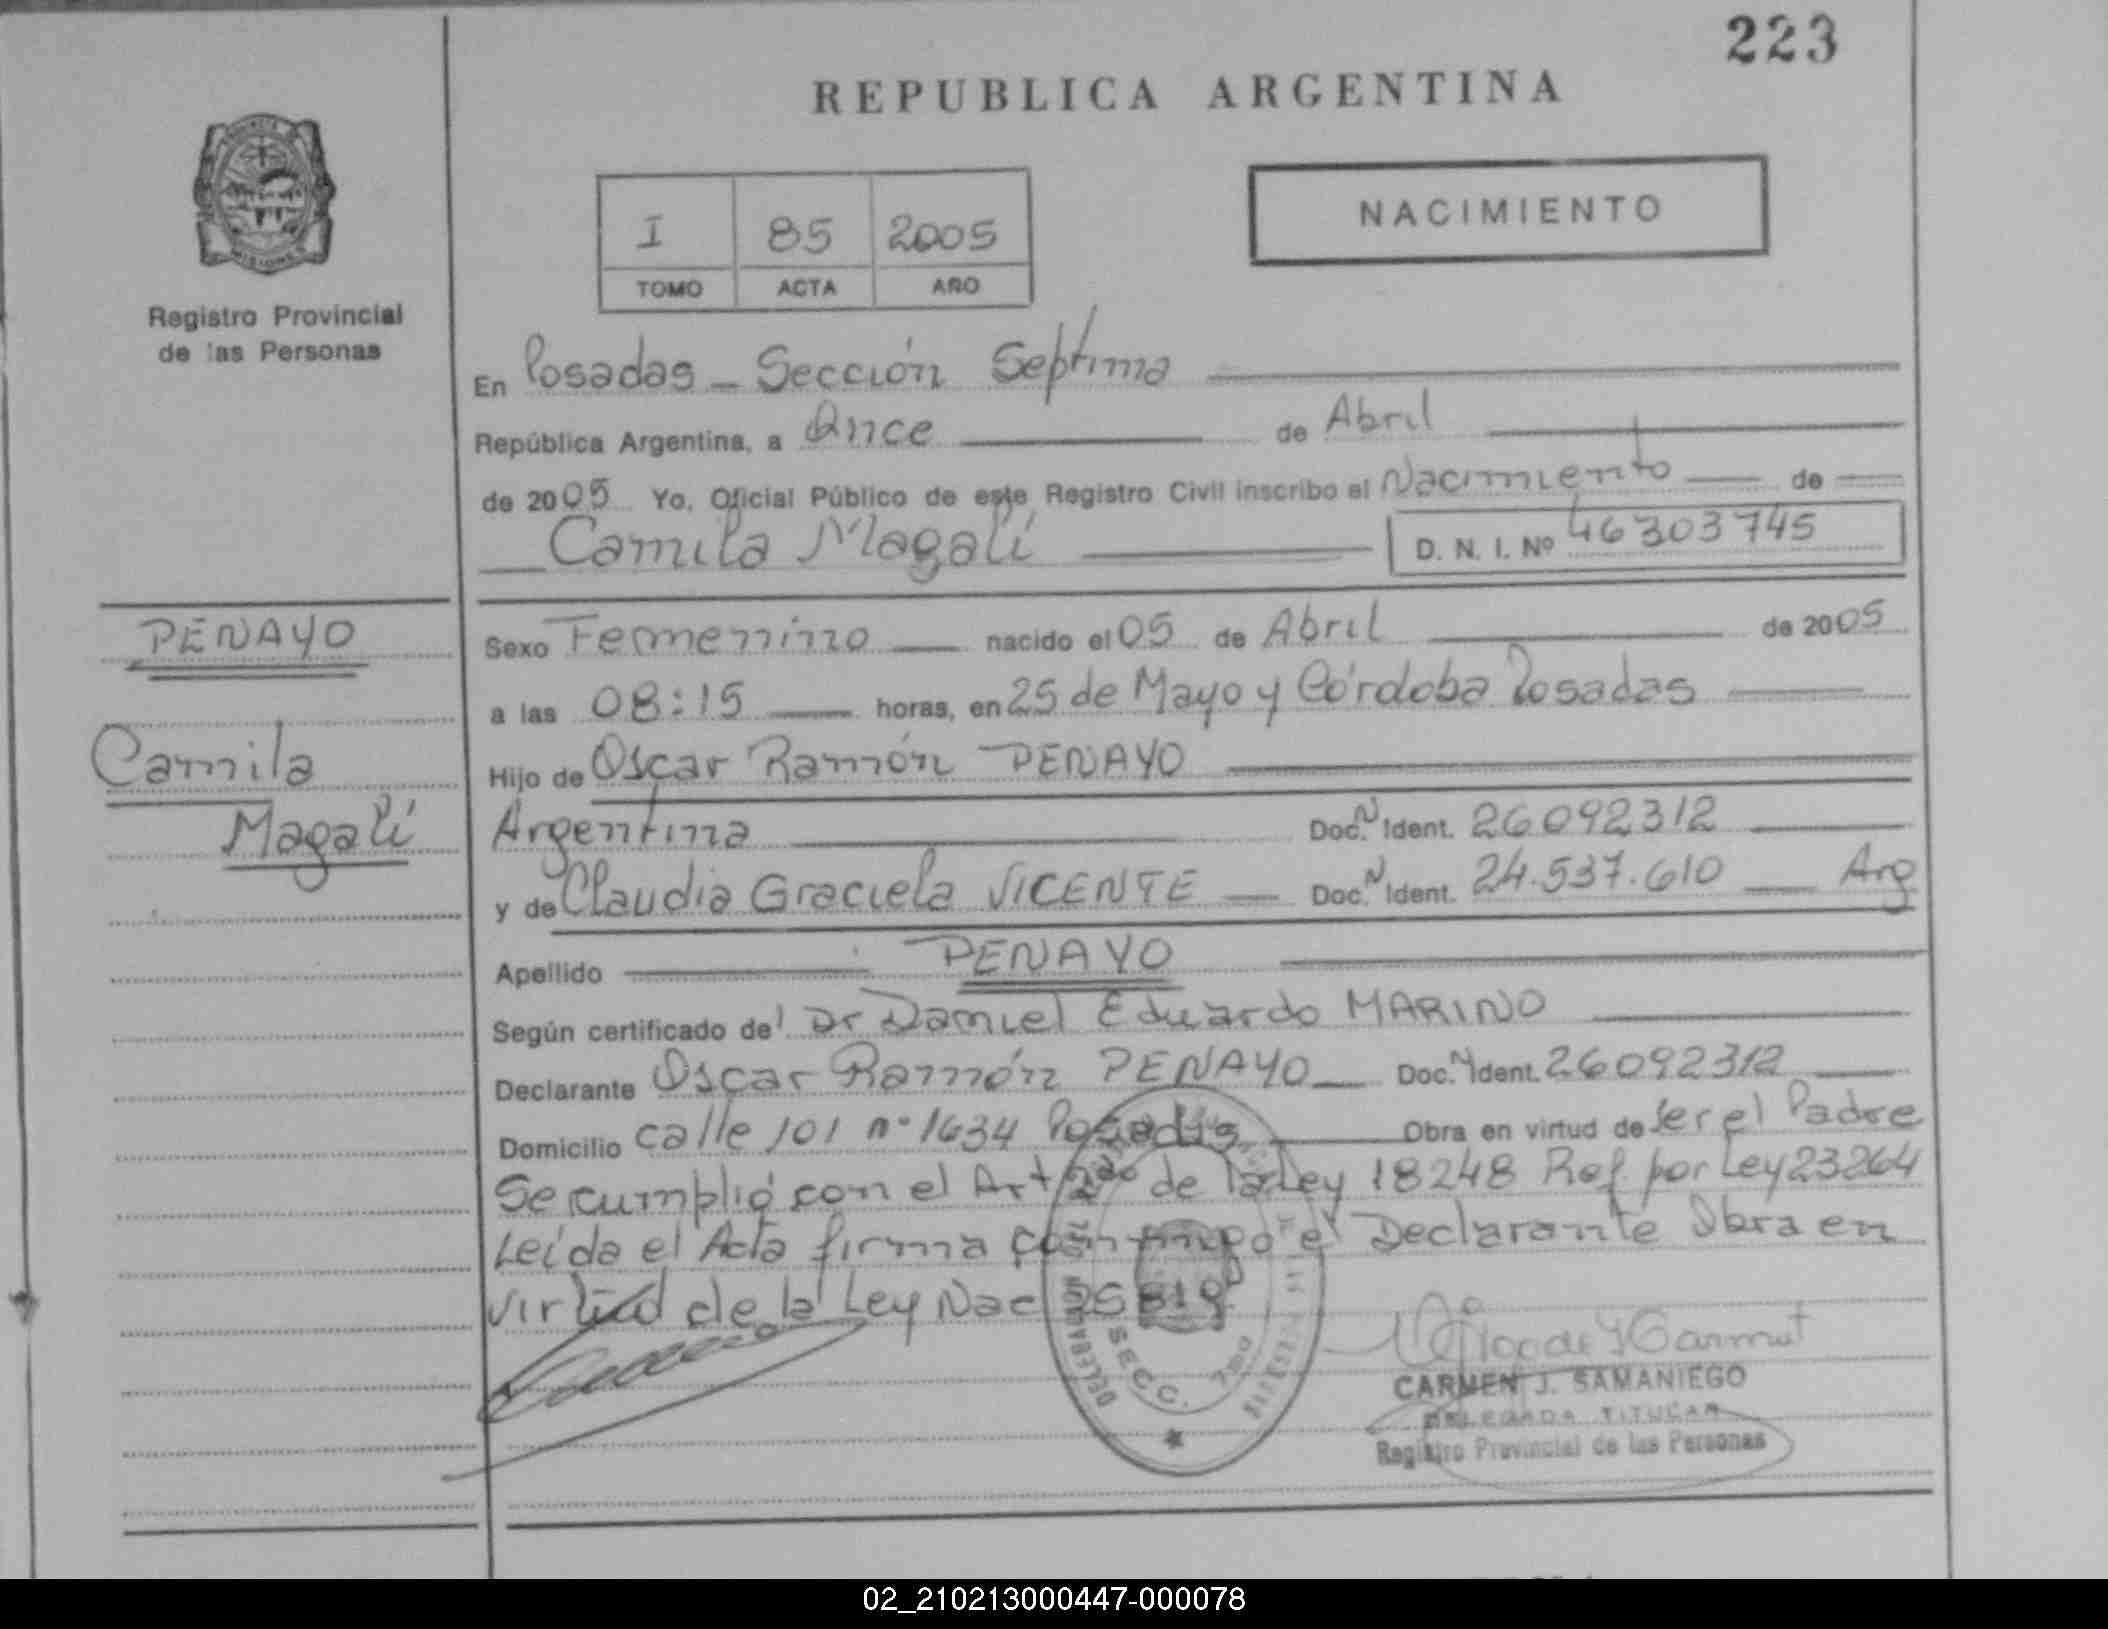 223
REPUBLICA ARGENTINA
I 85 2005
TOMO ACTA AÑO
NACIMIENTO
MISIONES
Registro Provincial
de las Personas
En Posadas - Sección Septima
República Argentina, a Once de Abril
de 2005 Yo, Oficial Público de este Registro Civil inscribo el Nacimiento de
Camila Magalí D. N. I. Nº 46303745
PENAYO
Camila
Magalí
Sexo Femenino nacido el 05 de Abril de 2005
a las 08:15 horas, en 25 de Mayo y Córdoba Posadas
Hijo de Oscar Ramón PENAYO
Argentina Doc. N Ident. 26092312
y de Claudia Graciela VICENTE Doc. N Ident. 24.537.610 Arg
Apellido PENAYO
Según certificado del Dr Daniel Eduardo MARINO
Declarante Oscar Ramón PENAYO Doc. N Ident. 26092312
Domicilio calle 101 nº 1634 Posadas Obra en virtud de Ser el Padre
Se cumplió con el Art 2do de la Ley 18248 Ref. por Ley 23264
Leída el Acta firma conmigo el Declarante Obra en
virtud de la Ley Nac
SECC. 7ma
CARMEN J. SAMANIEGO
DELEGADA TITULAR
Registro Provincial de las Personas
02_210213000447-000078